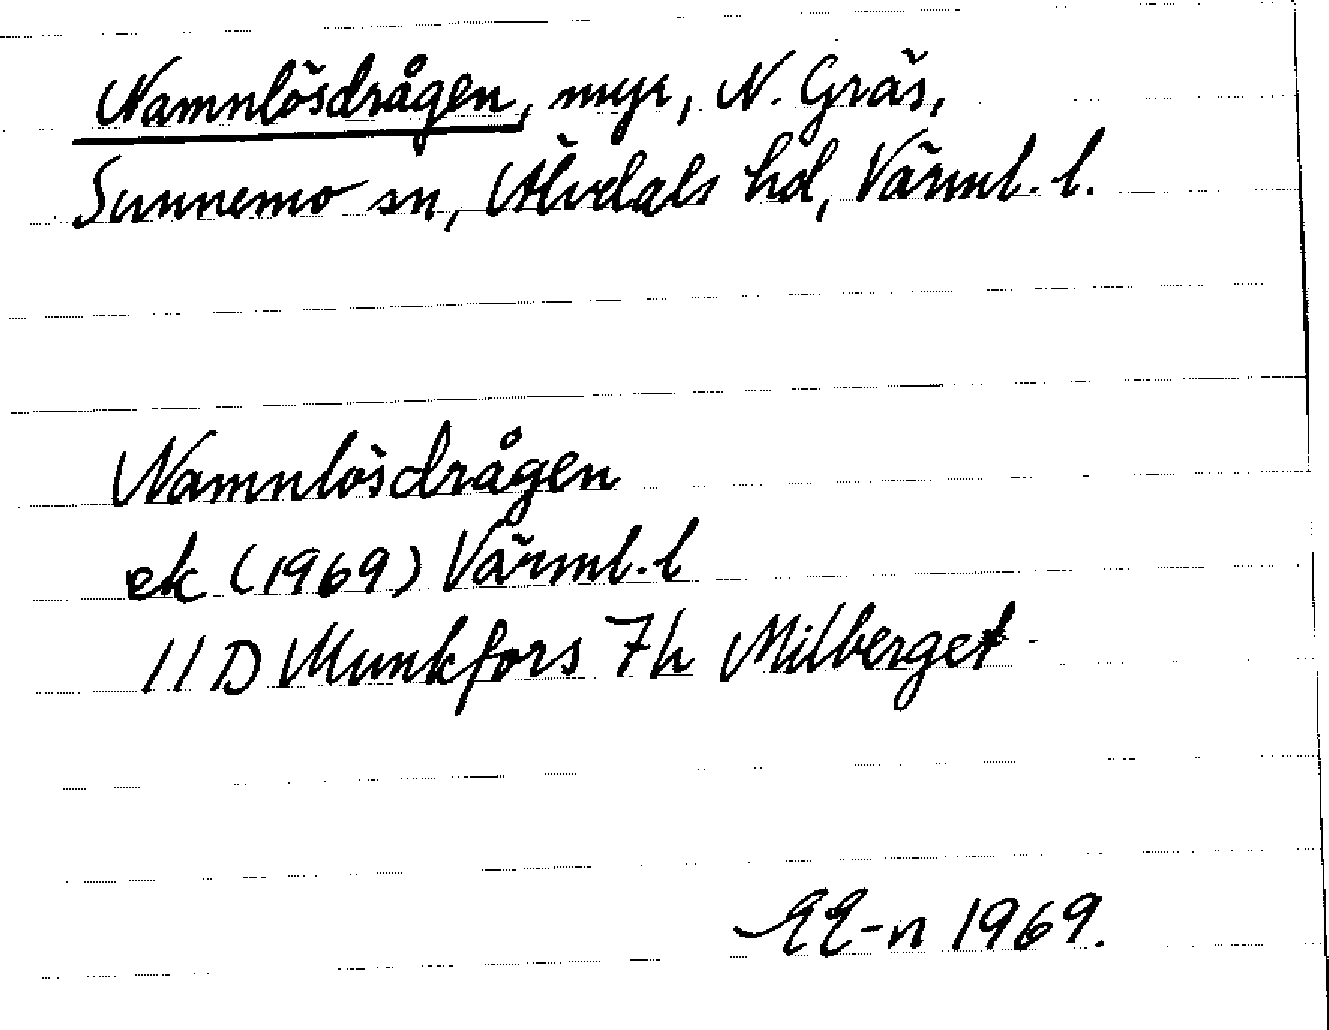 Namnlösdrågen, myr, N. Gräs,
Sunnemo sn, Älvdals hd, Värml. l.
Namnlösdrågen
ek (1969) Värml. l
11D Munkfors 7h Milberget
EE-n 1969.